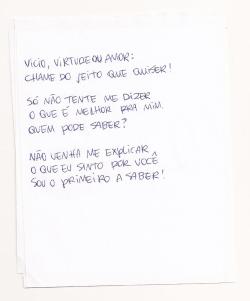 VÍCIO, VIRTUDE OU AMOR:
CHAME DO JEITO QUE QUISER!
SÓ NÃO TENTE ME DIZER
O QUE É MELHOR PRA MIM.
QUEM PODE SABER?
NÃO VENHA ME EXPLICAR
O QUE EU SINTO POR VOCÊ
SOU O PRIMEIRO A SABER!